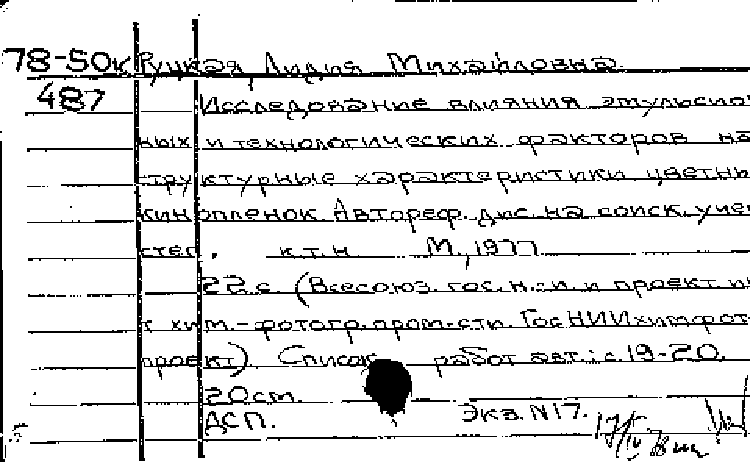 78-50к Руцкая Лидия Михайловна
487 Исследование влияния эмульсион
ных и технологических факторов на
структурные характеристики цветны
кинопленок. Автореф. дис. на соиск. учен
степ. к.т.н М., 1977
22 с (Всесоюз. гос. н.-и. и проект. ин
т хим.-фотогр. пром-сти. ГосНИИхимфот
проект). Список работ авт.: с. 19-20.
20 см.
ДСП. Экз. N 17.